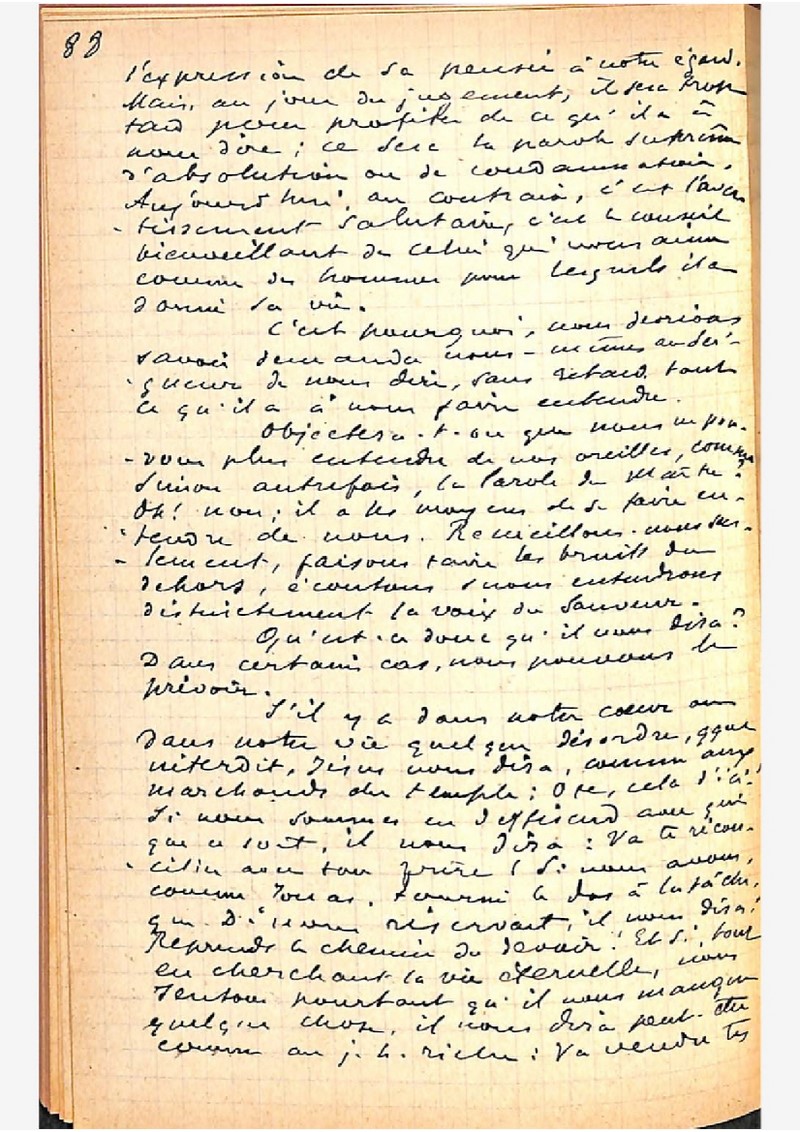 88
l'expression de sa pensée à notre égard.
Mais, au jour du jugement, il sera trop
tard pour profiter de ce qu'il a à
nous dire ; ce sera la parole suprême
d'absolution ou de condamnation.
Aujourd'hui, au contraire, c'est l'aver
- tissement salutaire, c'est le conseil
bienveillant de celui qui nous aime
comme des hommes pour lesquels il a
donné sa vie.
C'est pourquoi, nous devrions
savoir demander nous-mêmes au Sei-
- gneur de nous dire, sans retard tout
ce qu'il a à nous faire entendre.
Objectera-t-on que nous ne pou-
- vons plus entendre de nos oreilles, comme
Simon autrefois, la parole du Maître ?
Oh ! non ; il a les moyens de se faire en-
- tendre de nous. Recueillons-nous seu-
- lement, faisons taire les bruits du
dehors, écoutons & nous entendrons
distinctement la voix du Sauveur.
Qu'est-ce donc qu'il nous dira ?
Dans certains cas, nous pouvons le
prévoir.
S'il y a dans notre cœur ou
dans notre vie quelque désordre, qque
interdit, Jésus nous dira, comme aux
marchands du temple : Ote, cela d'ici !
Si nous sommes en différend avec qui
que ce soit, il nous dira : Va te récon-
- cilier avec ton frère ! Si nous avons,
comme Jonas, tourné le dos à la tâche,
que Dieu nous réservait, il nous dira :
Reprends le chemin du devoir ! Et si, tout
en cherchant la vie éternelle, nous
sentons pourtant qu'il nous manque
quelque chose, il nous dira peut-être
comme au j. h. riche : Va vendre tes